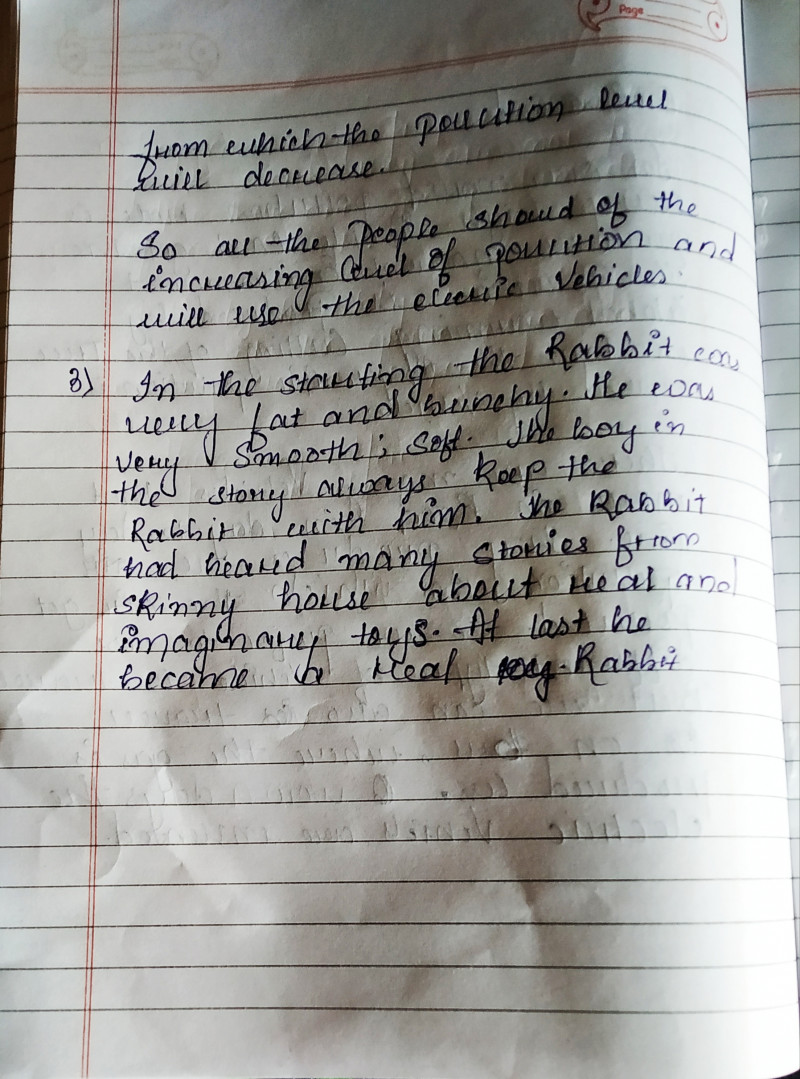 Page
from which the pollution level
will decrease.
So all the people should of the
increasing level of pollution and
will use the electric Vehicles.
3) In the starting the Rabbit was
very fat and bunchy. He was
very smooth; soft. The boy in
the story always keep the
Rabbit with him. The Rabbit
had heard many stories from
skinny house about real and
imaginary toys. At last he
became a real Rabbit